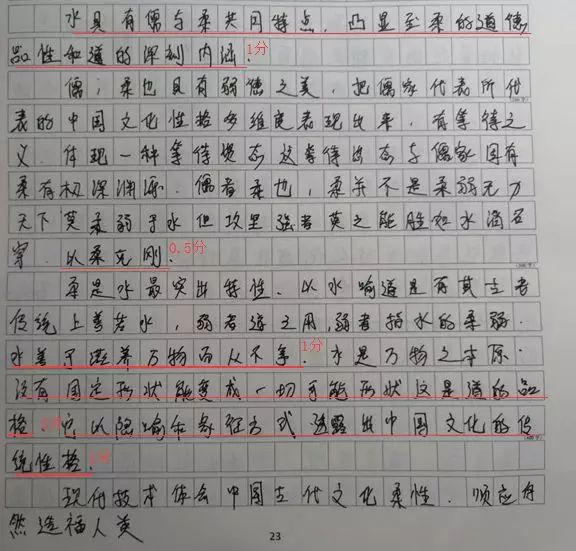 水具有儒与柔共同特点,凸显至柔的道德
品性和道的深刻内涵。1分
儒;柔也具有弱德之美,把儒家代表所代
表的中国文化性格多维良表现出来,有等待之
义.体现一种等待姿态这等待姿态与儒家固有
柔有极深渊源.儒者柔也,柔并不是柔弱无力
天下莫柔弱于水但攻坚强者莫之能胜如水滴石
穿.以柔克刚.0.5分
柔是水最突出特性.以水喻道是有其古老
传统上善若水,弱者道之用,弱者指水的柔弱.
水善于滋养万物而从不争.1分水是万物之本原.
没有固定形状能变成一切可能形状这是道的品
格.它以隐喻和象征方式透露出中国文化的传
统性格.
现代技术体会中国古代文化柔性.顺应自
然造福人类
23